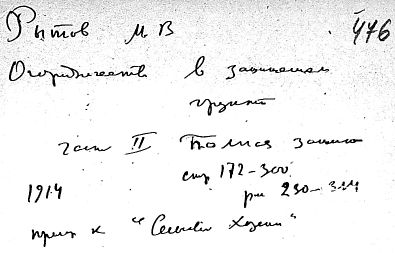 Рытов М В 476
Огородничество в защищенном
грунте
част II Полная защита
стр 172-300
1914 рис 230-344
прил к "Сельский Хозяин"